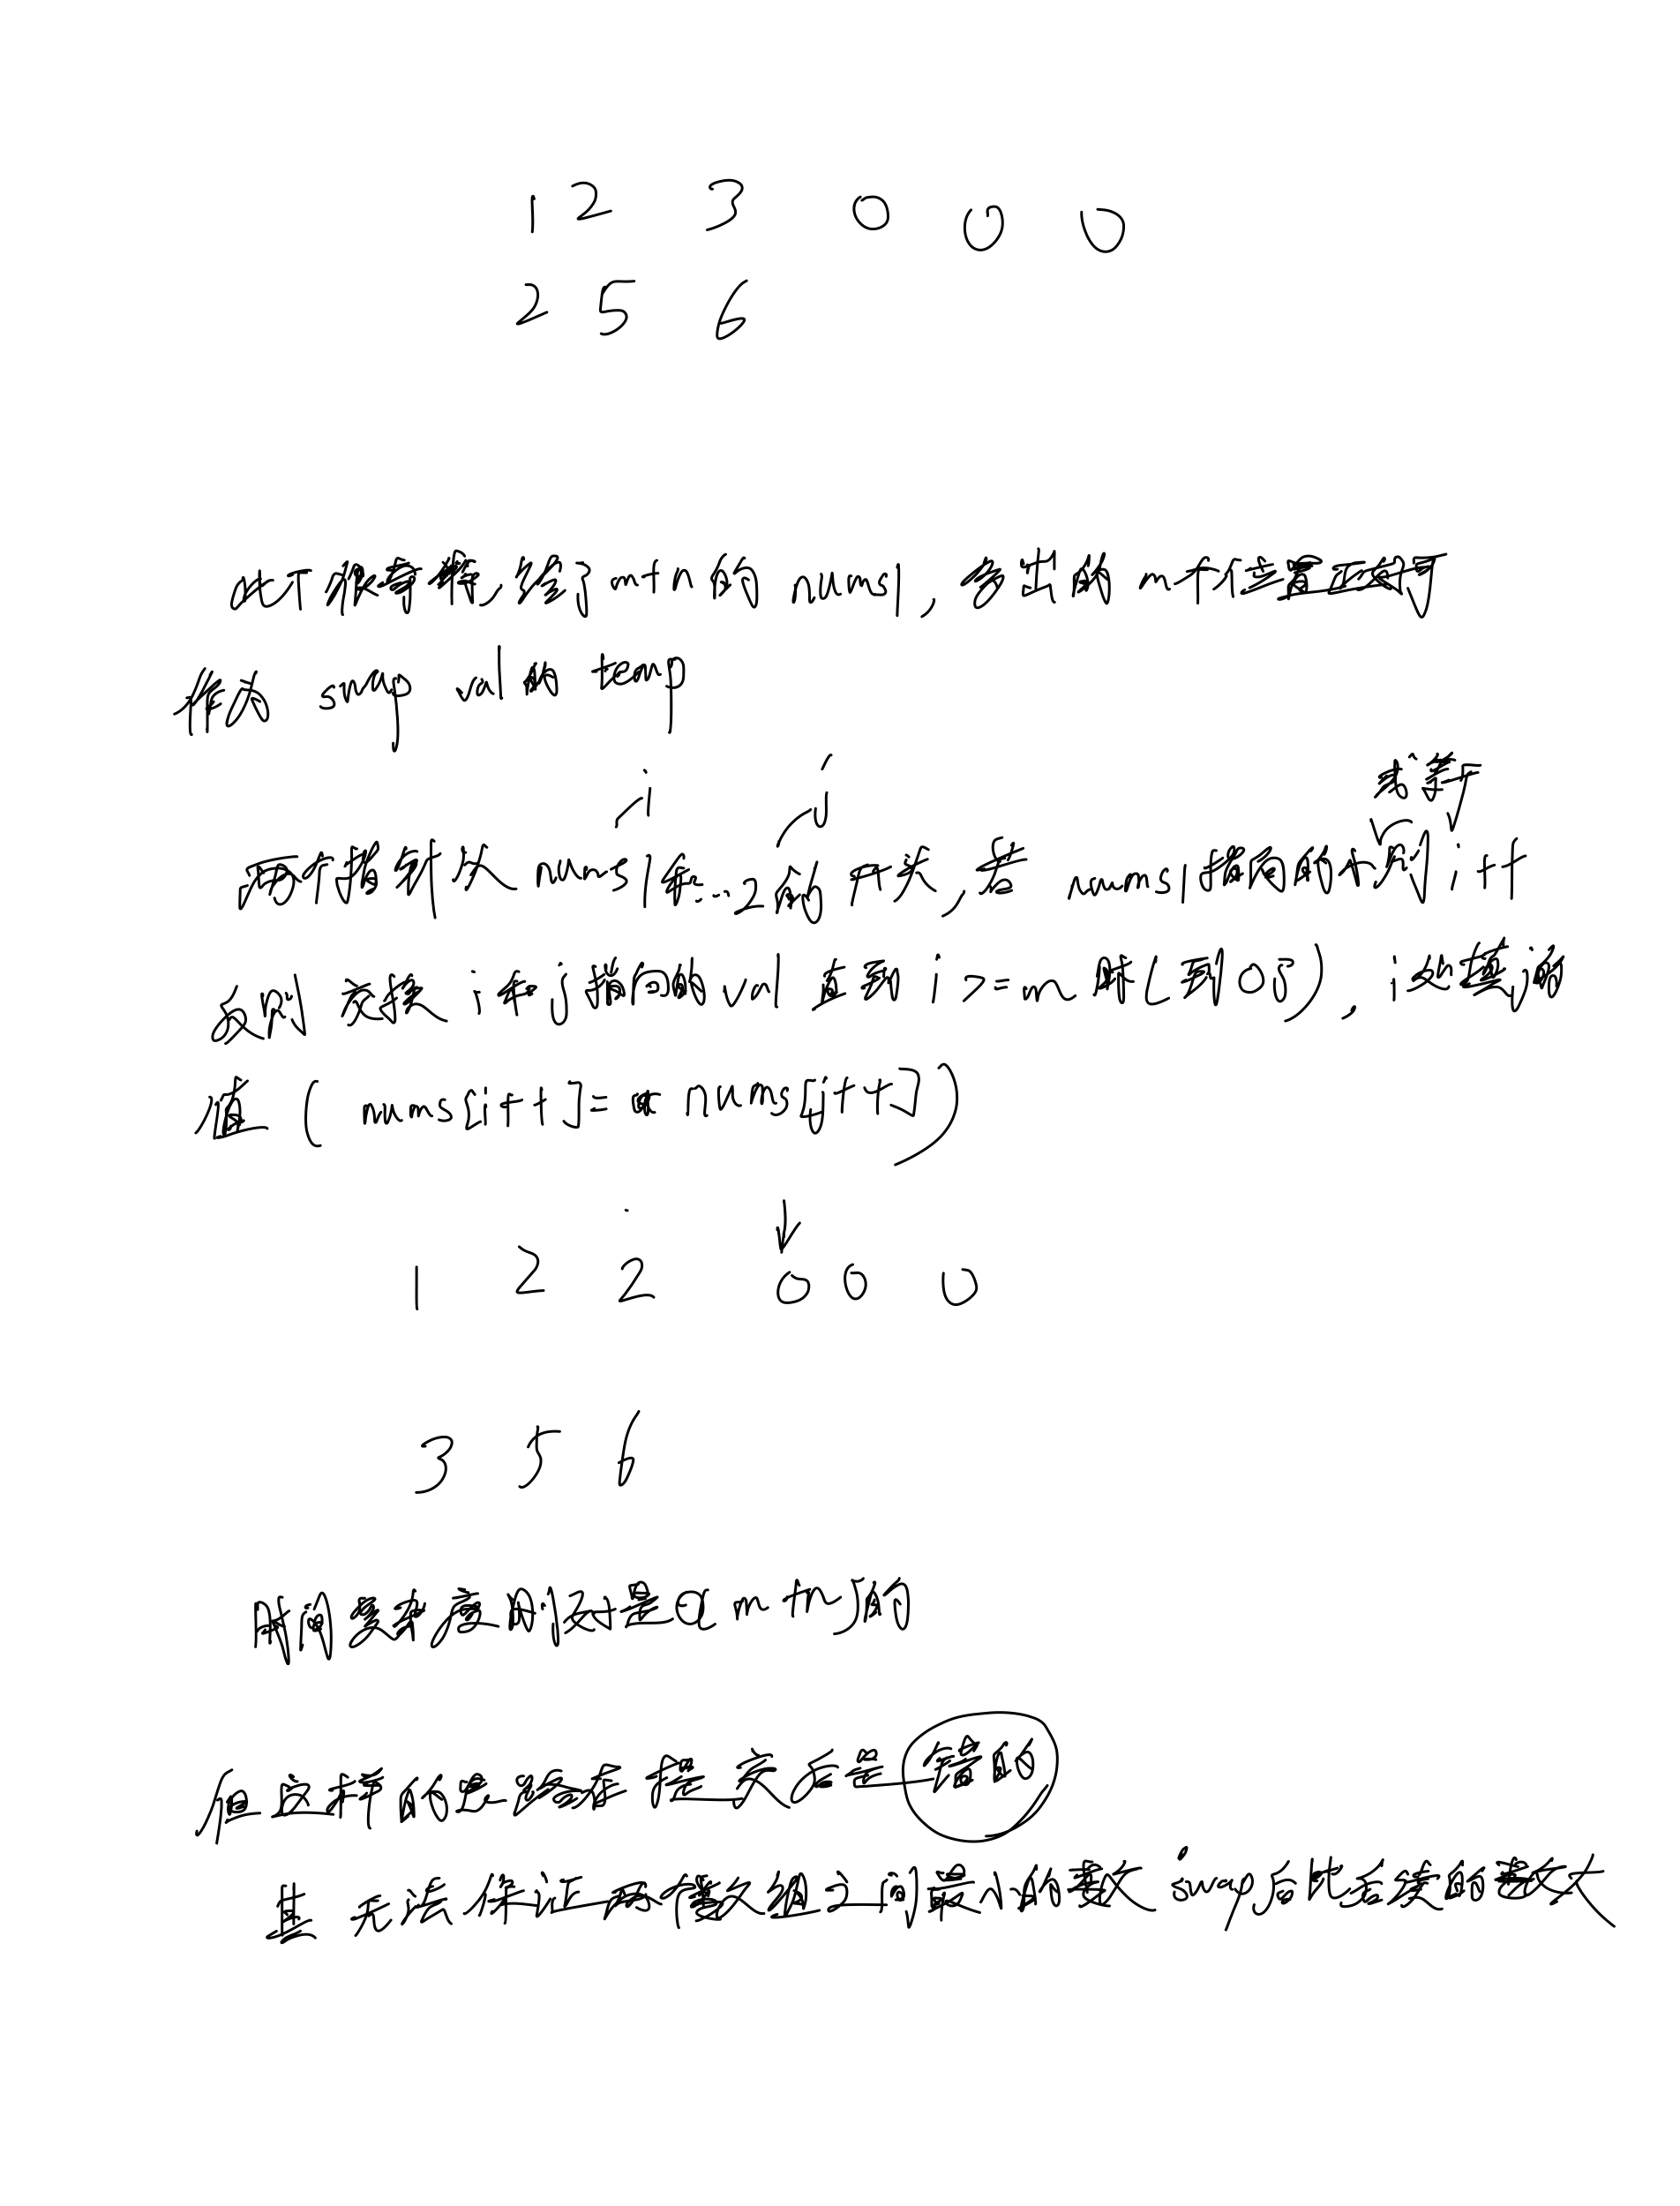 1 2 3 0 0 0
2 5 6
此下很奇特,给了m+n的 nums1,多出的 m个位置正好可
作为 swap val的 temp
i j 或等于
两个指针从 nums1和...2的开头,若 nums1指向的小则 i++
反则 交换 i和j指向的val 直到 i >= m 时(到0了),i处填j的
值( nums[i++]= nums[j++])
↓
1 2 2 0 0 0
3 5 6
时间复杂度刚好是O(m+n)的
但这样的思路在提交后是错的
其无法保证两个数组之间最小的数 swap后比后续的数大